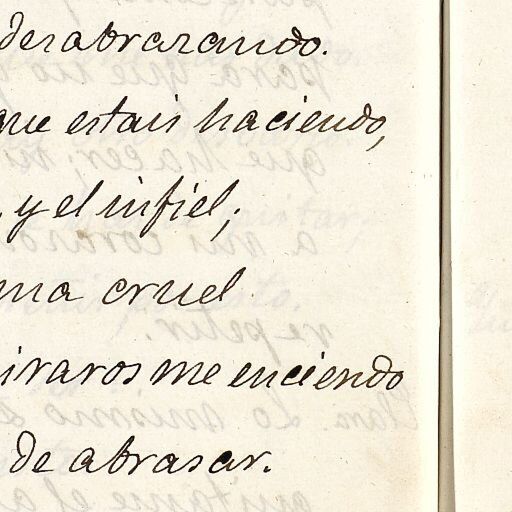 desabrazando.
que estais haciendo,
y el infiel;
cruel
me enciendo
de abrasar.